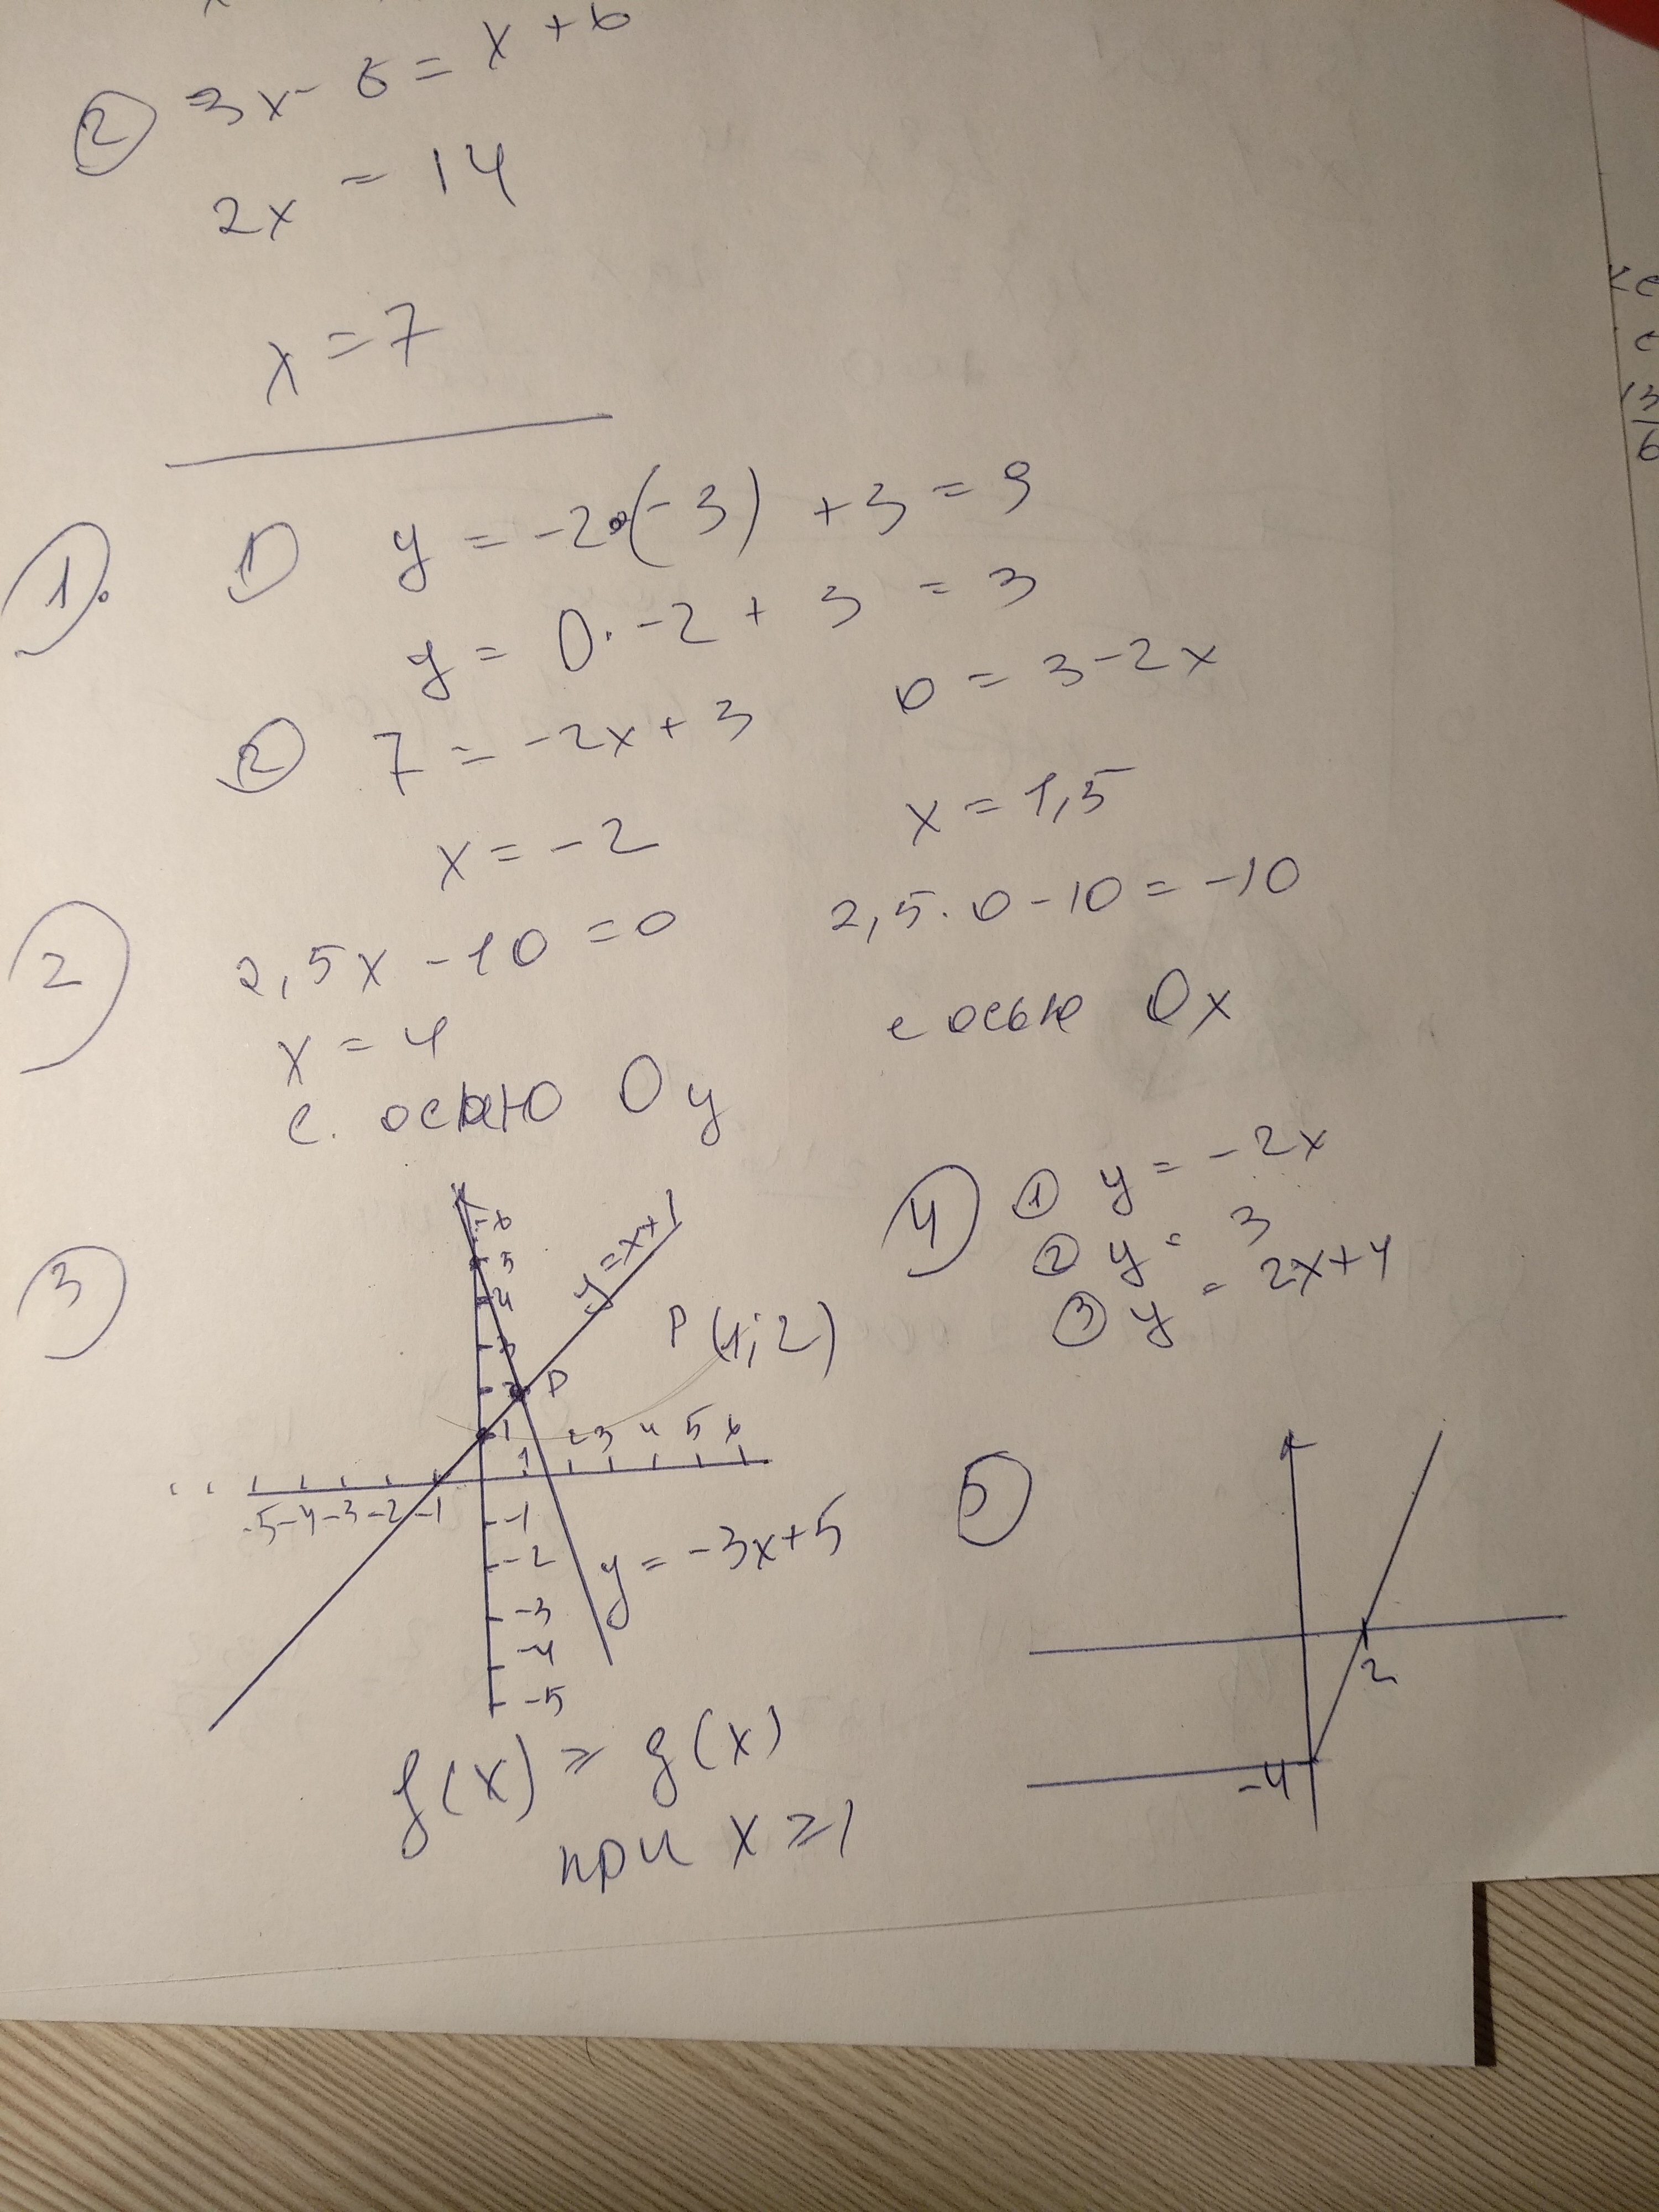 ② 3x - 8 = x + 6
2x = 14
x = 7
①. 1) y = -2•(-3) + 3 = 9
y = 0·-2 + 3 = 3
② 7 = -2x + 3 0 = 3 - 2x
x = -2 x = 1,5
② 2,5x - 10 = 0 2,5·0 - 10 = -10
x = 4 с осью Ox
с. осью Oy
③
6
5
4
3
2
1
y = x+1
P
P (1; 2)
1 2 3 4 5 6
-5 -4 -3 -2 -1
-1
-2
-3
-4
-5
y = -3x+5
f(x) ⩾ g(x)
при x ⩾ 1
④ ① y = -2x
② y = 3
③ y = 2x+4
⑤
2
-4